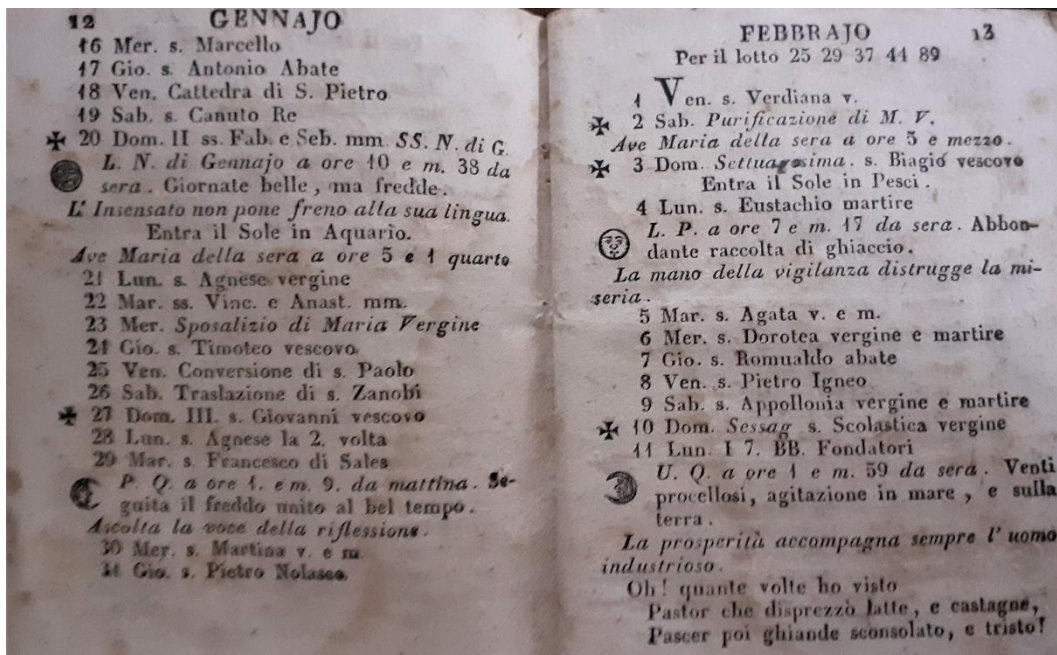 12 GENNAJO
16 Mer. s. Marcello
17 Gio. s. Antonio Abate
18 Ven. Cattedra di S. Pietro
19 Sab. s. Canuto Re
✠ 20 Dom. II ss. Fab. e Seb. mm. SS. N. di G.
L. N. di Gennajo a ore 10 e m. 38 da
sera. Giornate belle, ma fredde.
L' Insensato non pone freno alla sua lingua.
Entra il Sole in Aquario.
Ave Maria della sera a ore 5 e 1 quarto
21 Lun. s. Agnese vergine
22 Mar. ss. Vinc. e Anast. mm.
23 Mer. Sposalizio di Maria Vergine
24 Gio. s. Timoteo vescovo
25 Ven. Conversione di s. Paolo
26 Sab. Traslazione di s. Zanobi
✠ 27 Dom. III. s. Giovanni vescovo
28 Lun. s. Agnese la 2. volta
29 Mar. s. Francesco di Sales
P. Q. a ore 1. e m. 9. da mattina. Se-
guita il freddo unito al bel tempo.
Ascolta la voce della riflessione.
30 Mer. s. Martina v. e m.
31 Gio. s. Pietro Nolasco
FEBBRAJO 13
Per il lotto 25 29 37 44 89
1 Ven. s. Verdiana v.
✠ 2 Sab. Purificazione di M. V.
Ave Maria della sera a ore 5 e mezzo.
✠ 3 Dom. Settuagesima. s. Biagio vescovo
Entra il Sole in Pesci.
4 Lun. s. Eustachio martire
L. P. a ore 7 e m. 17 da sera. Abbon-
dante raccolta di ghiaccio.
La mano della vigilanza distrugge la mi-
seria.
5 Mar. s. Agata v. e m.
6 Mer. s. Dorotea vergine e martire
7 Gio. s. Romualdo abate
8 Ven. s. Pietro Igneo
9 Sab. s. Appollonia vergine e martire
✠ 10 Dom. Sessag s. Scolastica vergine
11 Lun. I 7. BB. Fondatori
U. Q. a ore 1 e m. 59 da sera. Venti
procellosi, agitazione in mare, e sulla
terra.
La prosperità accompagna sempre l' uomo
industrioso.
Oh! quante volte ho visto
Pastor che disprezzò latte, e castagne,
Pascer poi ghiande sconsolato, e tristo!